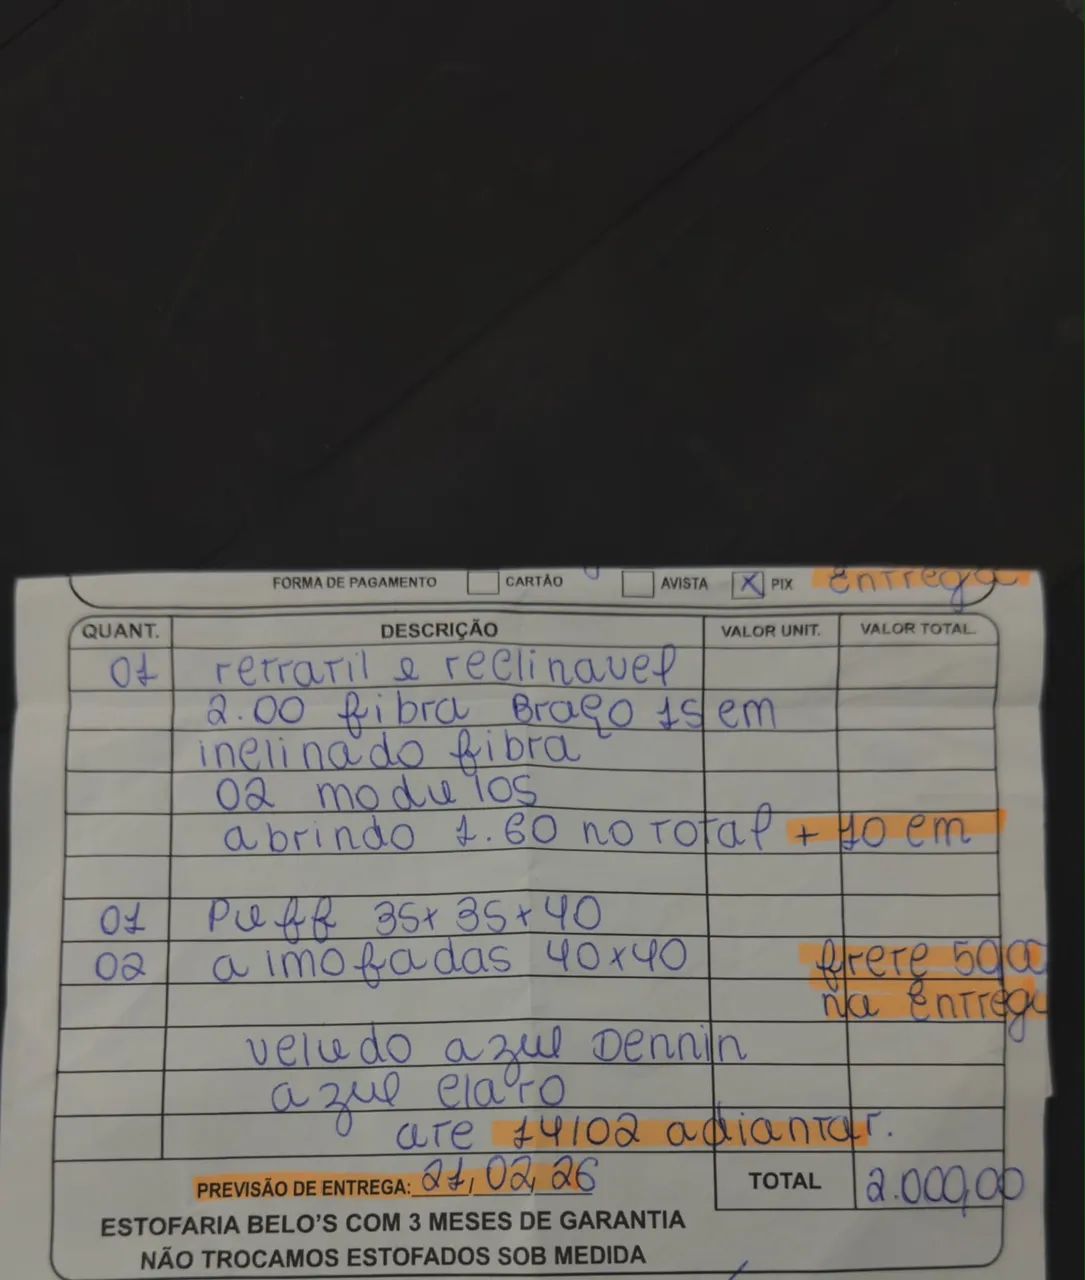 FORMA DE PAGAMENTO CARTÃO AVISTA X PIX Entrega
QUANT. DESCRIÇÃO VALOR UNIT. VALOR TOTAL
01 retratil e reclinavel
2.00 fibra Braço 15 cm
inclinado fibra
02 modulos
abrindo 1.60 no total + 10 cm
01 Puff 35x35x40
02 aimofadas 40x40 frete 50,00
na Entrega
veludo azul Dennin
azul claro
ate 14/02 adiantar.
PREVISÃO DE ENTREGA: 21,02,26 TOTAL 2.000,00
ESTOFARIA BELO'S COM 3 MESES DE GARANTIA
NÃO TROCAMOS ESTOFADOS SOB MEDIDA